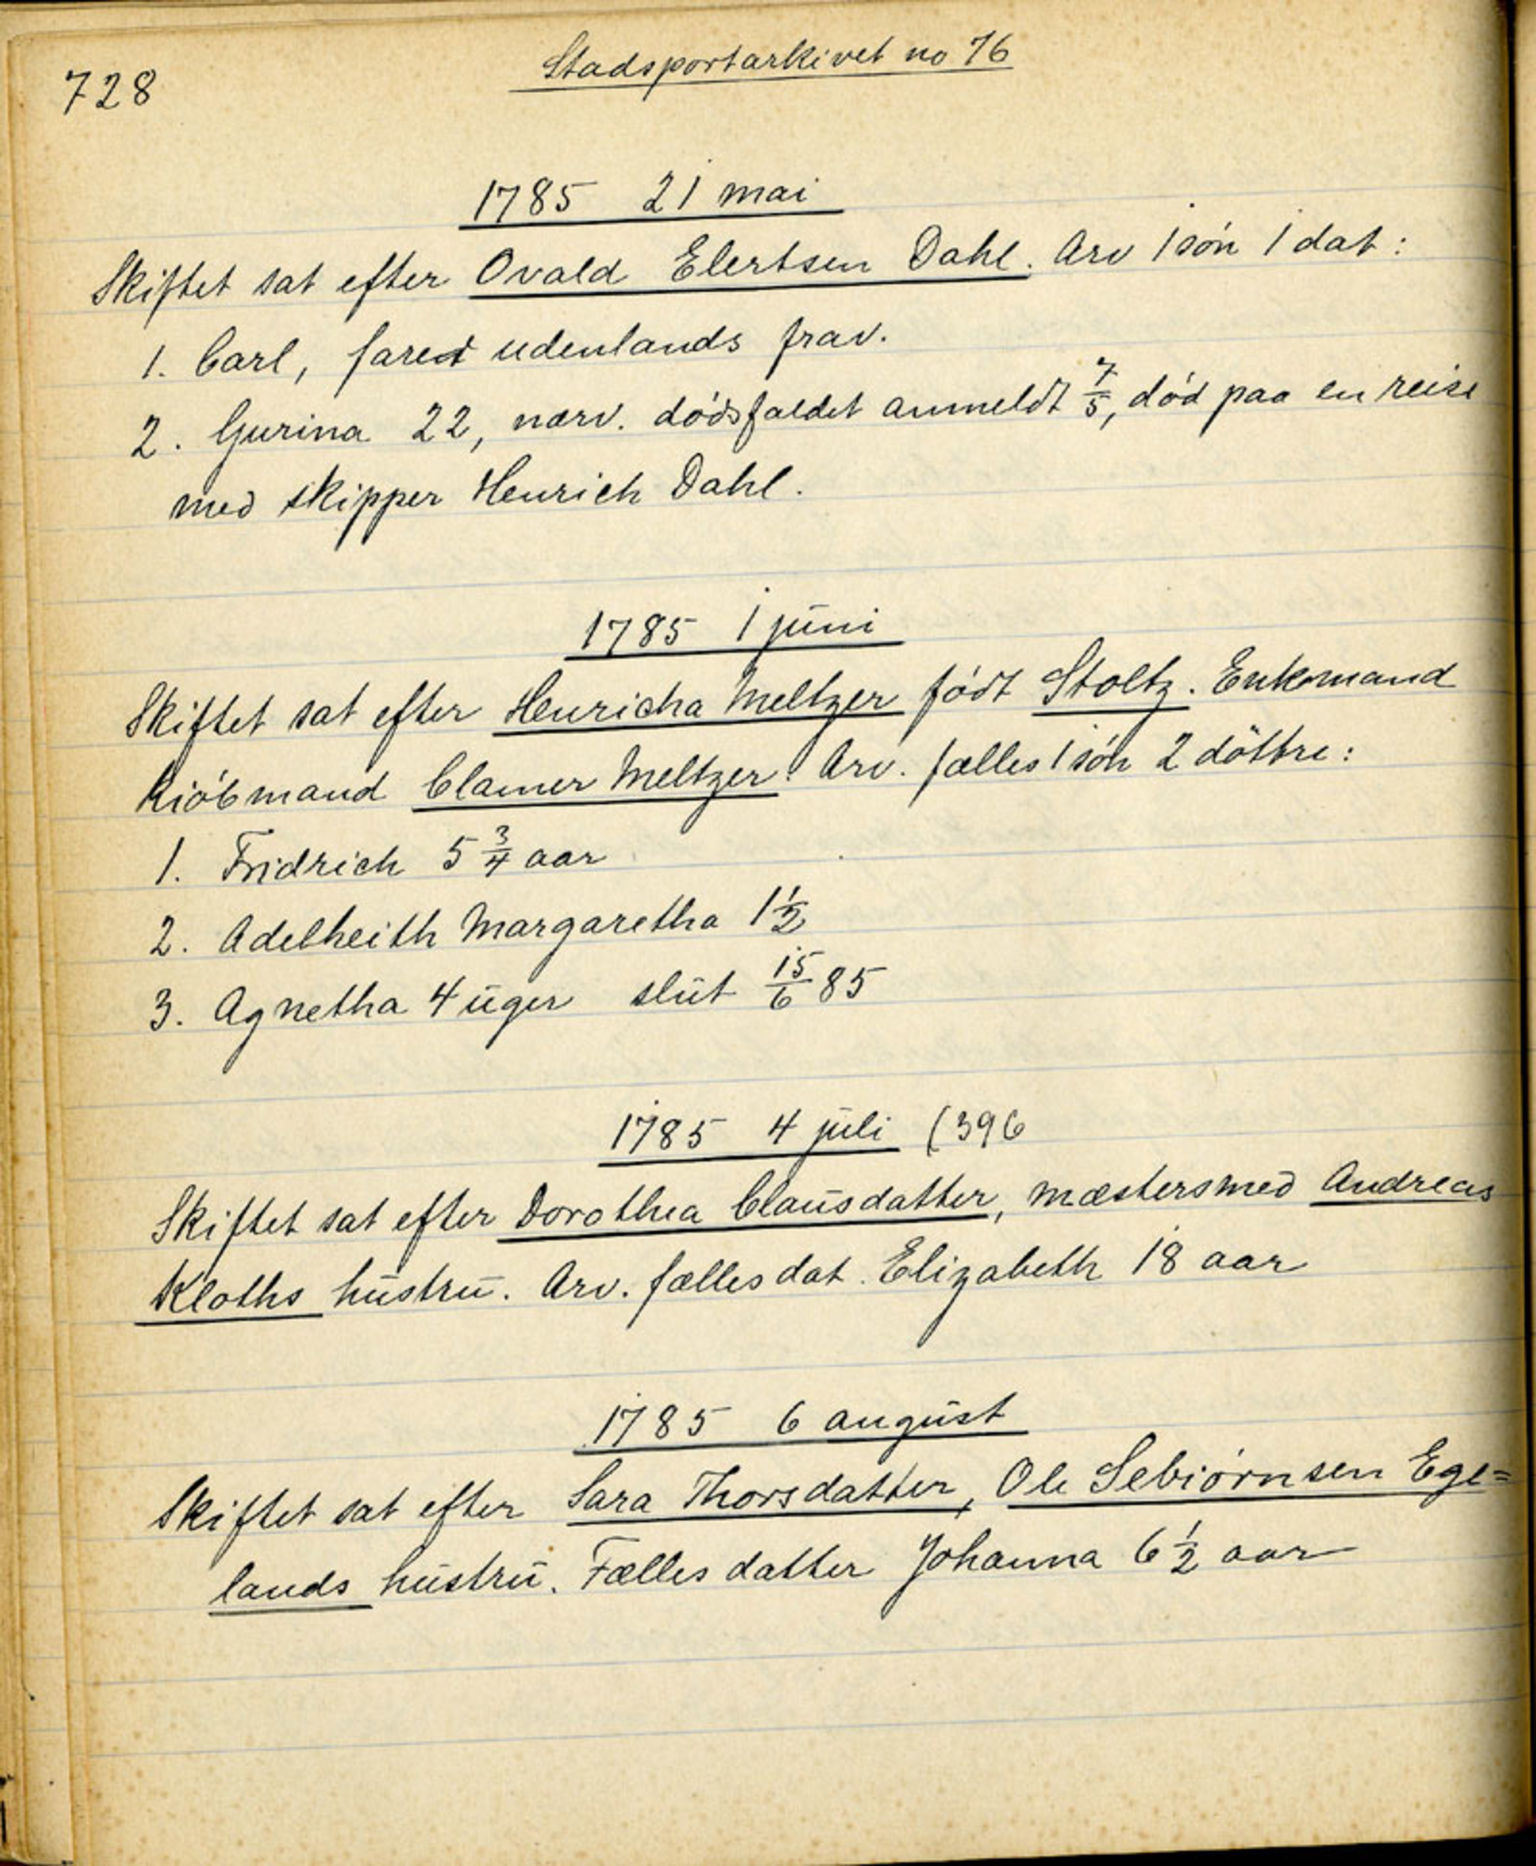 728
Stadsportarkivet no 76
1785 21 mai
Skiftet sat efter Ovald Elertsen Dahl. Arv 1 søn 1 dat:
1. Carl, faret udenlands frav.
2. Gurina 22, nærv. dødsfaldet anmeldt 7/5, død paa en reise
med skipper Henrich Dahl.
1785 1 juni
Skiftet sat efter Henricha Meltzer født Stoltz. Enkemand
kiøbmand Clamer Meltzer. Arv. fælles 1 søn 2 döttre:
1. Fridrich 5 3/4 aar
2. Adelheith Margaretha 1 1/2
3. Agnetha 4 uger slut 15/6 85
1785 4 juli (396
Skiftet sat efter Dorothea Clausdatter, mæstersmed Andreas
Kloths hustru. Arv. fælles dat. Elizabeth 18 aar
1785 6 august
Skiftet sat efter Sara Thorsdatter, Ole Sebiørnsen Ege=
lands hustru. Fælles datter Johanna 6 1/2 aar